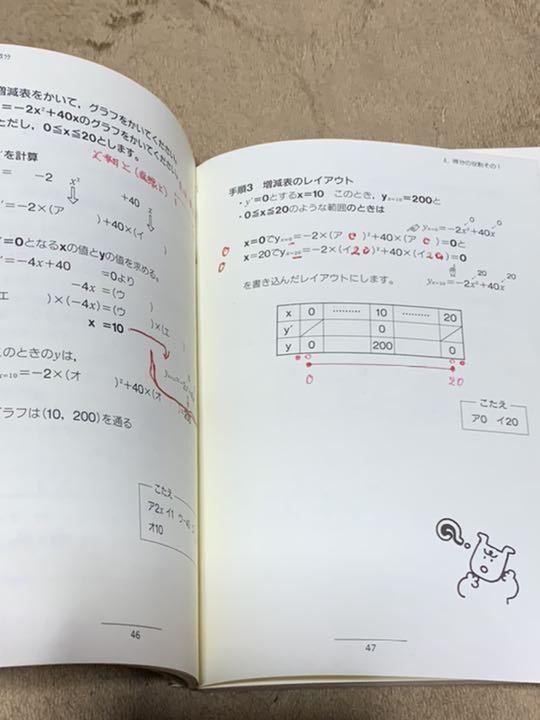 増減表をかいて，グラフをかいてください
=−2x²+40xのグラフをかいてください
ただし，0≦x≦20とします。
を計算
= −2 x² +40 x
′=−2×(ア )+40×(イ )
y′=0となるxの値とyの値を求める。
=−4x+40 =0より
−4x =(ウ )
エ )×(−4x)=(ウ )×(エ
x =10
このときのyは，
x=10=−2×(オ )²+40×(オ
グラフは(10, 200)を通る
こたえ
ア2x イ1
オ10
46
手順3 増減表のレイアウト
・y′=0とするx=10 このとき，yx=10=200と
・0≦x≦20のような範囲のときは
0 0
yx=0=−2x²+40x
x=0でyx=0=−2×(ア 0 )²+40×(ア 0 )=0と
x=20でyx=20=−2×(イ20)²+40×(イ20)=0
0
0
20 20
yx=20=−2x²+40x
を書き込んだレイアウトにします。
x 0 ……… 10 ……… 20
y′ 0
y 0 200 0
0 20
こたえ
ア0 イ20
47